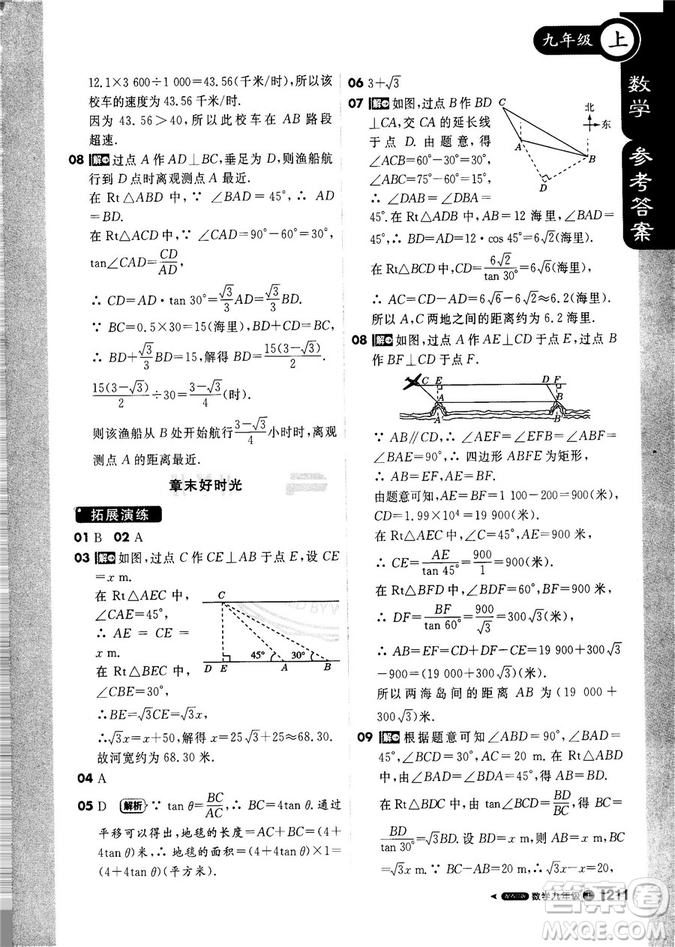 九年级 上
数学 参考答案
12.1×3 600÷1 000=43.56(千米/时),所以该
校车的速度为 43.56 千米/时.
因为 43.56>40,所以此校车在 AB 路段
超速.
08 解 过点 A 作 AD⊥BC,垂足为 D,则渔船航
行到 D 点时离观测点 A 最近.
在 Rt△ABD 中,∵∠BAD=45°,∴BD=AD.
在 Rt△ACD 中,∵∠CAD=90°-60°=30°,
tan∠CAD=CD/AD,
∴CD=AD·tan 30°=√3/3 AD=√3/3 BD.
∵BC=0.5×30=15(海里),BD+CD=BC,
∴BD+√3/3 BD=15,解得 BD=15(3-√3)/2.
15(3-√3)/2÷30=(3-√3)/4(时).
则该渔船从 B 处开始航行(3-√3)/4小时时,离观
测点 A 的距离最近.
章末好时光
拓展演练
01 B 02 A
03 解 如图,过点 C 作 CE⊥AB 于点 E,设 CE=
x m.
在 Rt△AEC 中,
∠CAE=45°,
∴AE=CE=
x m.
在 Rt△BEC 中,
∠CBE=30°,
C
45° 30°
D E A B
∴BE=√3CE=√3x m,
∴√3x=x+50,∴x=25√3+25≈68.30.
故河宽约为 68.30 米.
04 A
05 D 解析 ∵tan θ=BC/AC,∴BC=4tan θ.通过
平移可以得到,地毯的长度=AC+BC=(4+
4tan θ)米,∴地毯的面积=(4+4tan θ)×1=
(4+4tan θ)(平方米).
06 3+√3
07 解 如图,过点 B 作 BD
⊥CA,交 CA 的延长线
于点 D.由题意,得
∠ACB=60°-30°=30°,
∠ABC=75°-60°=15°,
∴∠DAB=∠DBA=
C 北 东 A B D
45°.在 Rt△ADB 中,AB=12 海里,∠BAD=
45°,∴BD=AD=12·cos 45°=6√2(海里).
在 Rt△BCD 中,CD=6√2/tan 30°=6√6(海里),
∴AC=CD-AD=6√6-6√2≈6.2(海里).
所以 A,C 两地之间的距离约为 6.2 海里.
08 解 如图,过点 A 作 AE⊥CD 于点 E,过点 B
作 BF⊥CD 于点 F.
C E D F
A B
∵AB∥CD,∴∠AEF=∠EFB=∠ABF=
90°,∴四边形 ABFE 为矩形,
∴AB=EF,AE=BF.
由题意可知,AE=BF=1 000-100=900(米),
CD=1.99×10⁴=19 900(米).
∴在 Rt△AEC 中,∠C=45°,AE=900 米,
∴CE=AE/tan 45°=900/1=900(米).
在 Rt△BFD 中,∠BDF=60°,BF=900 米,
∴DF=BF/tan 60°=900/√3=300√3(米).
∴AB=EF=CD+DF-CE=19 900+300√3
-900=19 000+300√3(米).
所以两海岛间的距离 AB 为(19 000+
300√3)米.
09 解 根据题意可知∠ABD=90°,AB=10 m.
在 Rt△BDC 中,∠BCD=30°,在 Rt△ABD
中,∠BAD=∠BDA=45°,∴AB=BD.
在 Rt△BDC 中,∵tan∠BCD=BD/BC,∴BC=
BD/tan 30°=√3BD.设 BD=x m,∴BC=√3BD
=√3x m.∵BC-AB=10 m,∴√3x-x=10,
数学九年级 上 121
答案圈